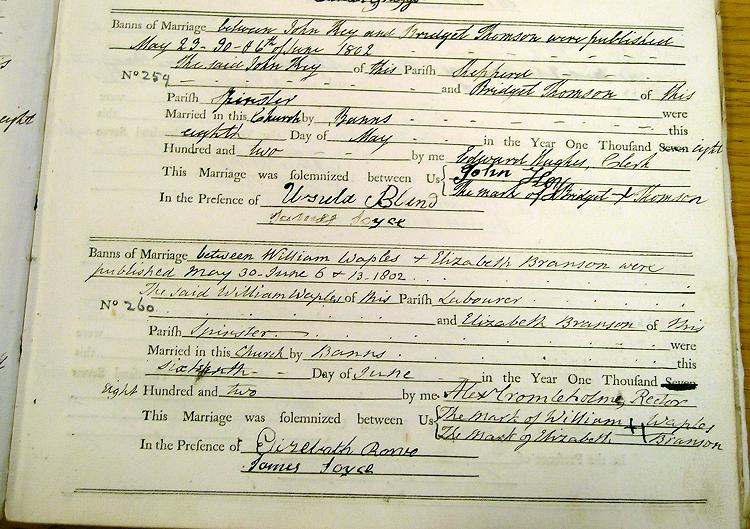 Banns of Marriage between John Hey and Bridget Thomson were published
May 23 - 30 - & 6th of June 1802
The said John Hey of this Parish Shepperd
No 259 and Bridget Thomson of this
Parish Spinster
Married in this Church by Banns were
eighth Day of May this
in the Year One Thousand Seven eight
Hundred and two by me Edward Hughes, Clerk
This Marriage was solemnized between Us John Hey
The mark of Bridget + Thomson
In the Presence of Ursula Blend
James Joyce
Banns of Marriage between William Waples & Elizabeth Branson were
published May 30 - June 6 & 13 - 1802
The said William Waples of this Parish Labourer
No 260 and Elizabeth Branson of this
Parish Spinster were
Married in this Church by Banns this
sixteenth Day of June in the Year One Thousand Seven
eight Hundred and two by me Alex Crombleholme, Rector
This Marriage was solemnized between Us The Mark of William + Waples
The Mark of Elizabeth + Branson
In the Presence of Elizebath
James Joyce